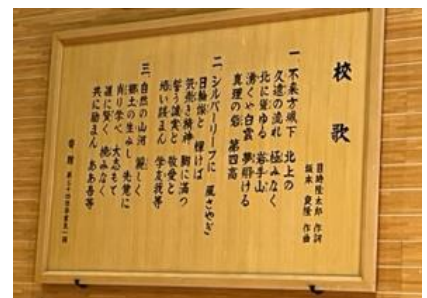 校歌
目時隆太郎 作詞
坂本 良隆 作曲
一 不来方城下 北上の
久遠の流れ 極みなく
北に聳ゆる 岩手山
湧くや白雲 夢懸ける
真理の砦 第四高
二 シルバーリーフに 風さやぎ
日輪燦と 輝けば
気衝き精神 胸に満つ
誓う誠実と 敬愛と
培い拓まん 学友我等
三 自然の山河 麗しく
郷土の生みし 先覚に
肖り学べ 大志もて
道に賢く 撓みなく
共に励まん ああ吾等
寄贈 第三十四回卒業生一同